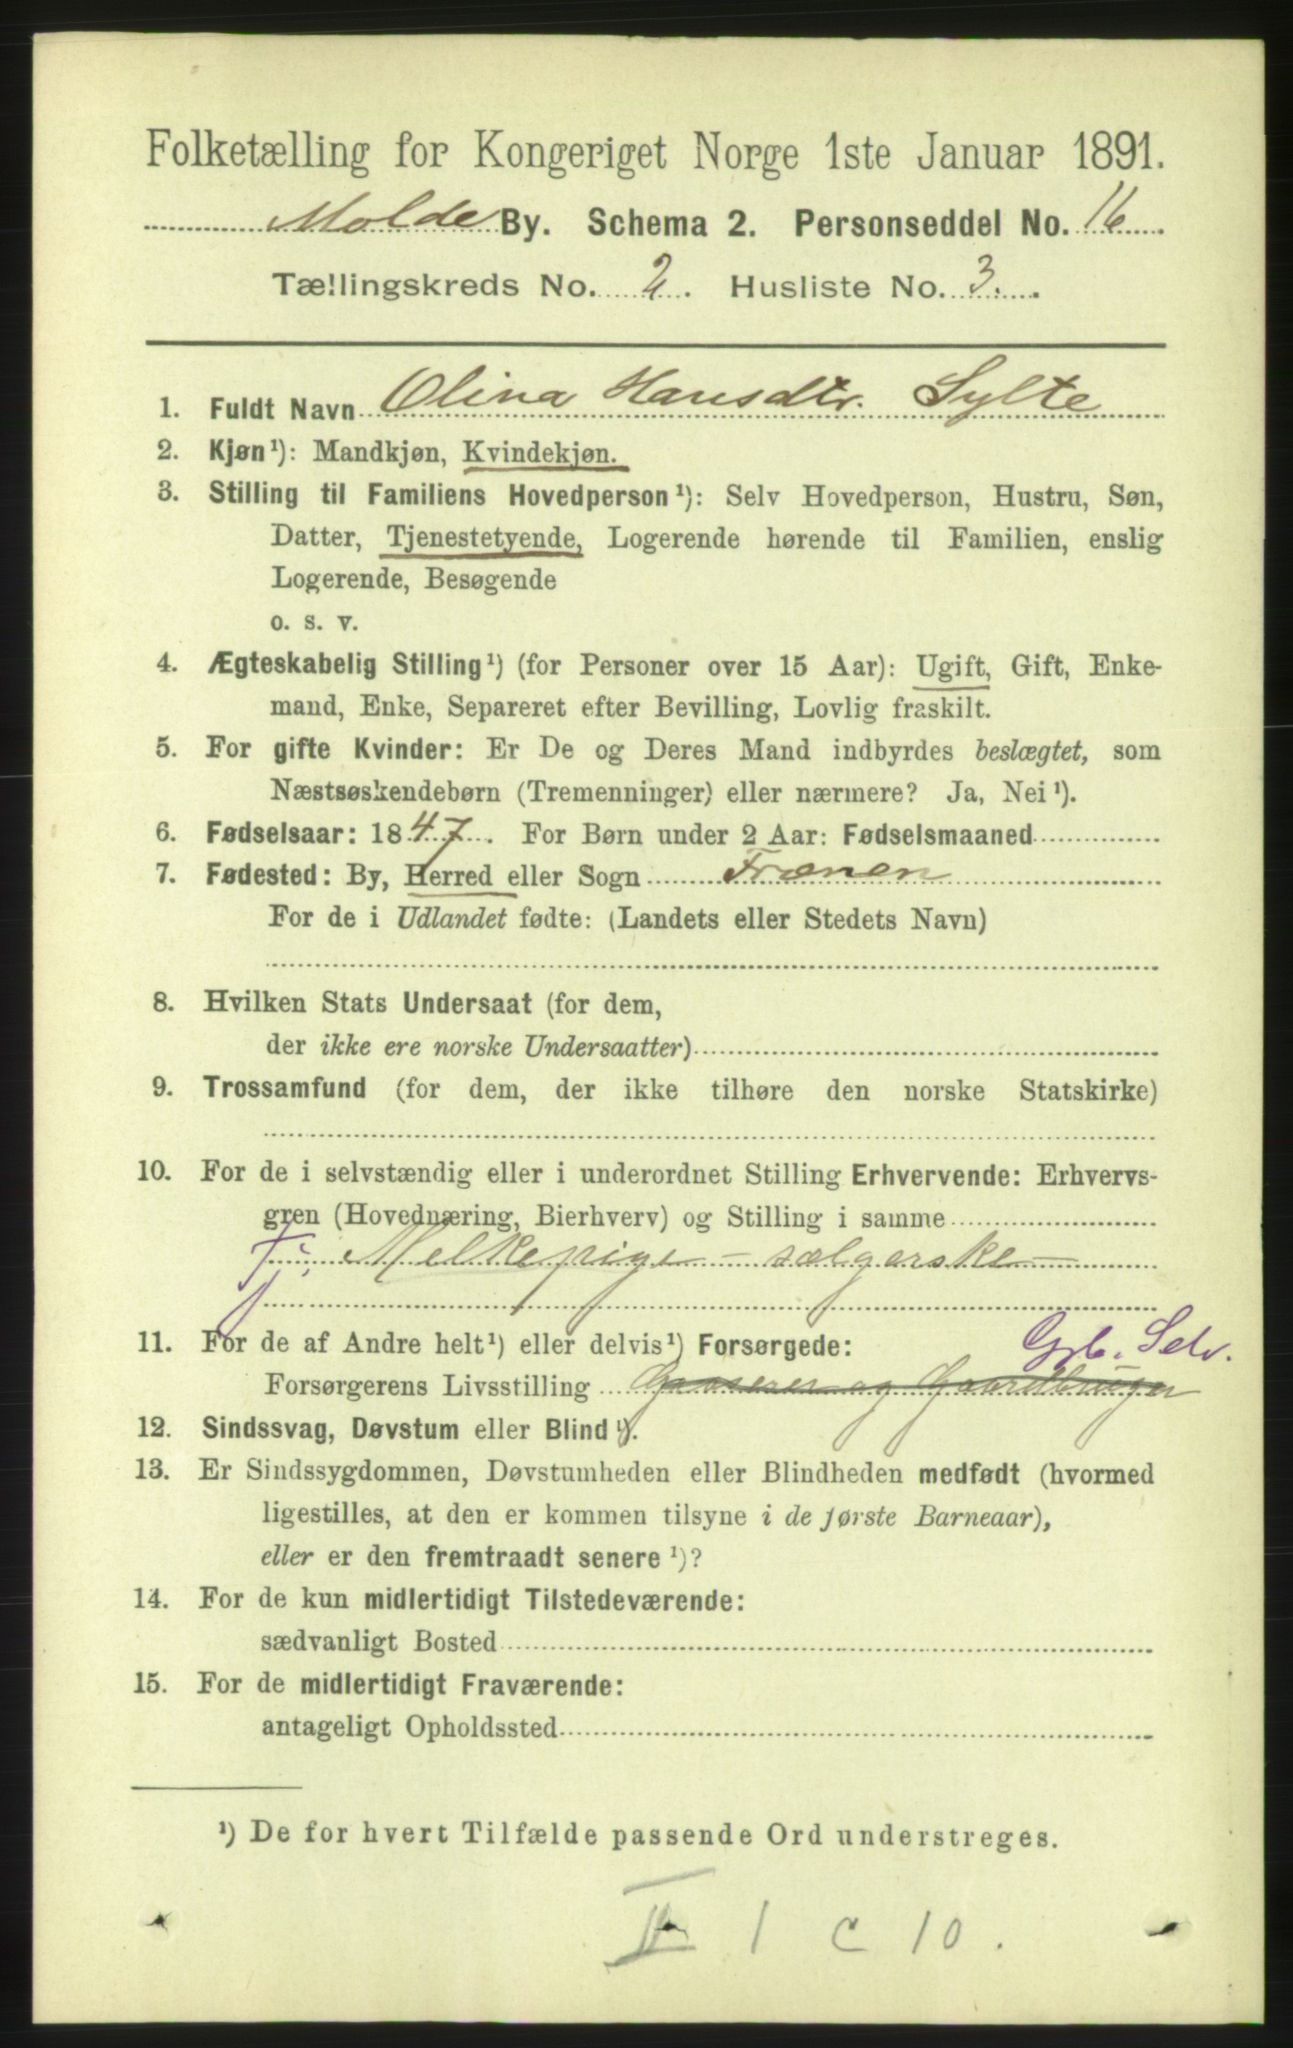 Folketælling for Kongeriget Norge 1ste Januar 1891.
Molde By. Schema 2. Personseddel No. 16
Tællingskreds No. 2. Husliste No. 3.
1. Fuldt Navn Olina Hansdtr. Sylte
2. Kjøn¹): Mandkjøn, Kvindekjøn.
3. Stilling til Familiens Hovedperson¹): Selv Hovedperson, Hustru, Søn,
Datter, Tjenestetyende, Logerende hørende til Familien, enslig
Logerende, Besøgende
o. s. v.
4. Ægteskabelig Stilling¹) (for Personer over 15 Aar): Ugift, Gift, Enke-
mand, Enke, Separeret efter Bevilling, Lovlig fraskilt.
5. For gifte Kvinder: Er De og Deres Mand indbyrdes beslægtet, som
Næstsøskendebørn (Tremenninger) eller nærmere? Ja, Nei¹).
6. Fødselsaar: 1847. For Børn under 2 Aar: Fødselsmaaned
7. Fødested: By, Herred eller Sogn Frænen
For de i Udlandet fødte: (Landets eller Stedets Navn)
8. Hvilken Stats Undersaat (for dem,
der ikke ere norske Undersaatter)
9. Trossamfund (for dem, der ikke tilhøre den norske Statskirke)
10. For de i selvstændig eller i underordnet Stilling Erhvervende: Erhvervs-
gren (Hovednæring, Bierhverv) og Stilling i samme
Tj. Melkepige – sælgerske –
11. For de af Andre helt¹) eller delvis¹) Forsørgede:
Gb. Selv.
Forsørgerens Livsstilling og Gaardbruger
12. Sindssvag, Døvstum eller Blind¹).
13. Er Sindssygdommen, Døvstumheden eller Blindheden medfødt (hvormed
ligestilles, at den er kommen tilsyne i de første Barneaar),
eller er den fremtraadt senere¹)?
14. For de kun midlertidigt Tilstedeværende:
sædvanligt Bosted
15. For de midlertidigt Fraværende:
antageligt Opholdssted
¹) De for hvert Tilfælde passende Ord understreges.
II 1 c 10.